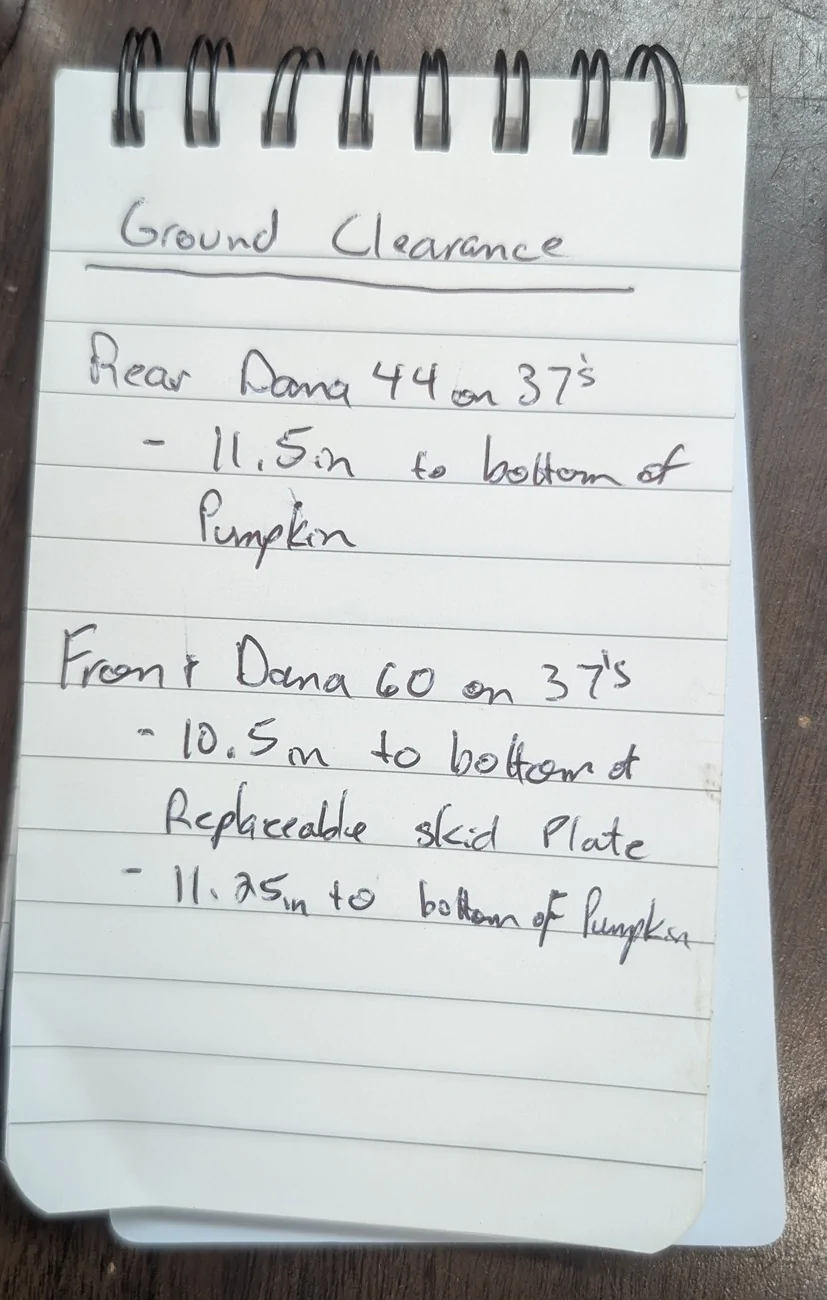 Ground Clearance
Rear Dana 44 on 37's
- 11.5in to bottom of
Pumpkin
Front Dana 60 on 37's
- 10.5in to bottom of
Replaceable skid Plate
- 11.25in to bottom of Pumpkin